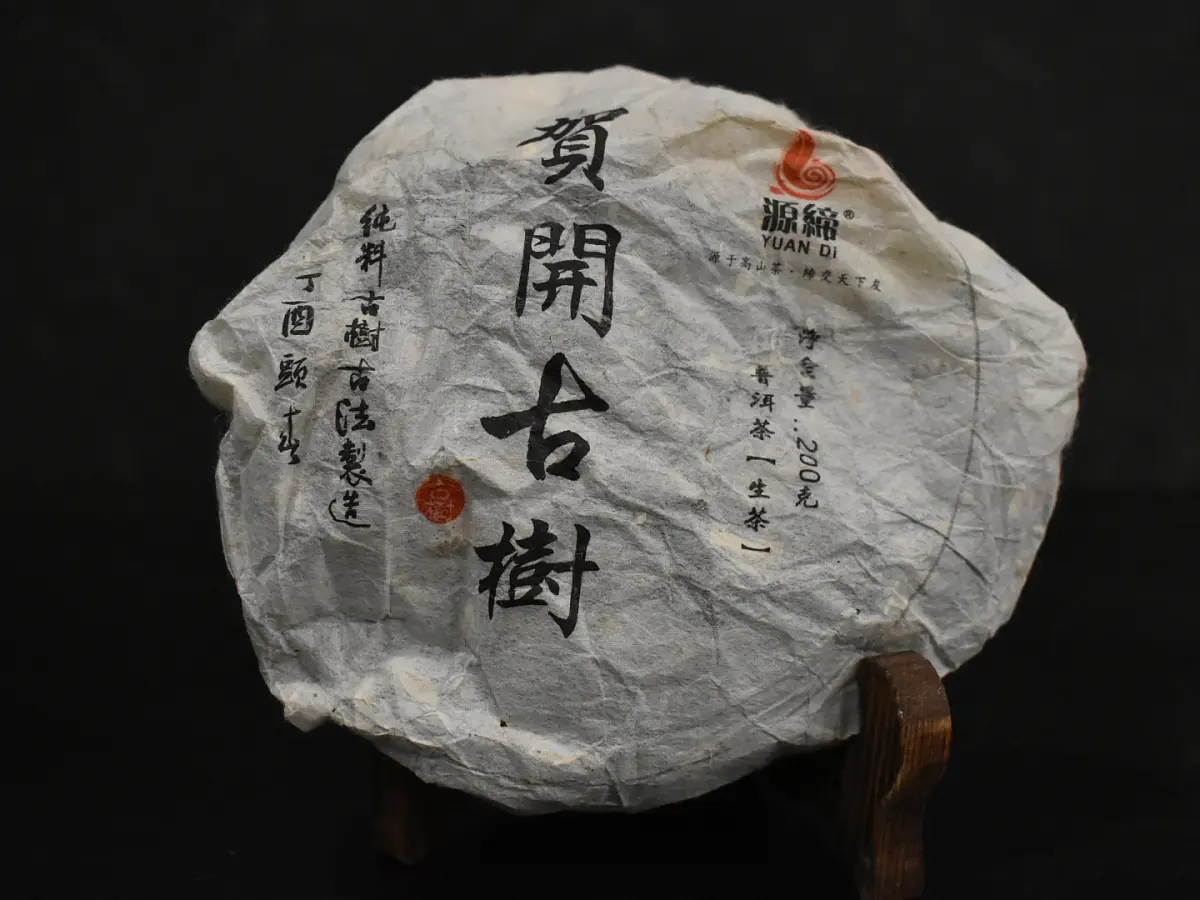 源締®
YUAN Di
源于高山茶·締交天下友
净含量：200克
普洱茶【生茶】
賀開古樹
古樹
純料古樹古法製造
丁酉頭春